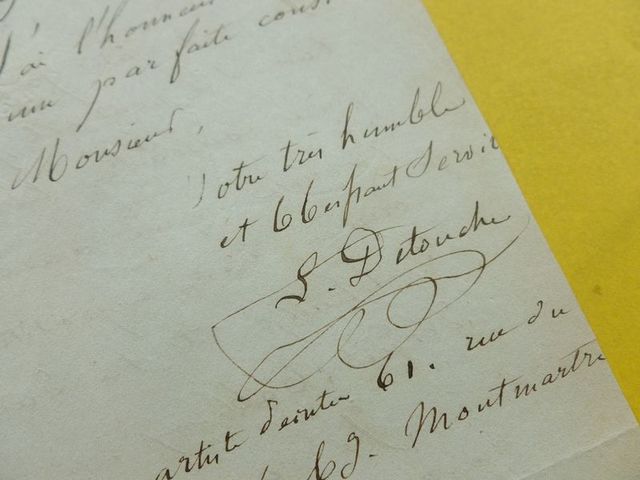 j'ai l'honneur
une parfaite cons
Monsieur,
Votre très humble
et Obéissant Servit
L. Detouche
artiste peintre 61. rue du
fg. Montmartre